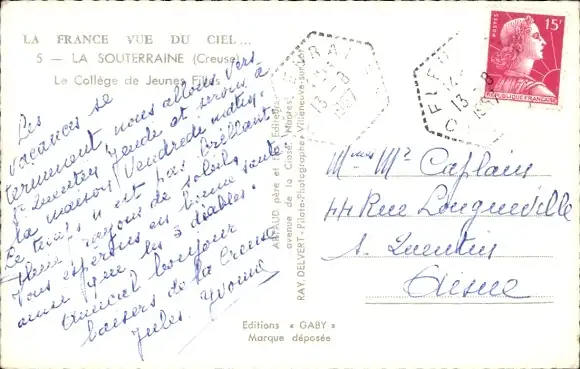 LA FRANCE VUE DU CIEL...
5 - LA SOUTERRAINE (Creuse)
Le Collège de Jeunes Filles
Les
vacances se
terminent, nous allons vers
St Quentin Jeudi et serons à
la maison Vendredi matin.
Le temps n'est pas brillant
Pleins rayons de soleil.
Vous espérons en bonne santé
ainsi que les 3 diables.
Amical bonjour
baisers de la Creuse
Jules. Yvonne
ARNAUD père et fils Editeurs
avenue de la Close, Nantes
RAY. DELVERT - Pilote-Photographe - Villeneuve-sur-Lot
FLEURAT
13-8
1957
FLEURAT
13-8
1957
15F
POSTES
REPUBLIQUE FRANÇAISE
Mme Mr Caplain
44 Rue Longueville
St. Quentin
Aisne
Editions « GABY »
Marque déposée